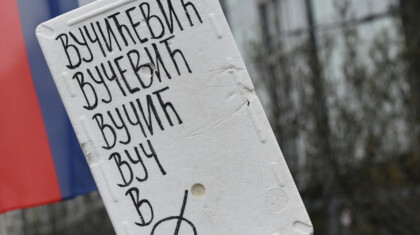 ВУЧИЋЕВИЋ
ВУЧЕВИЋ
ВУЧИЋ
ВУЧ
В